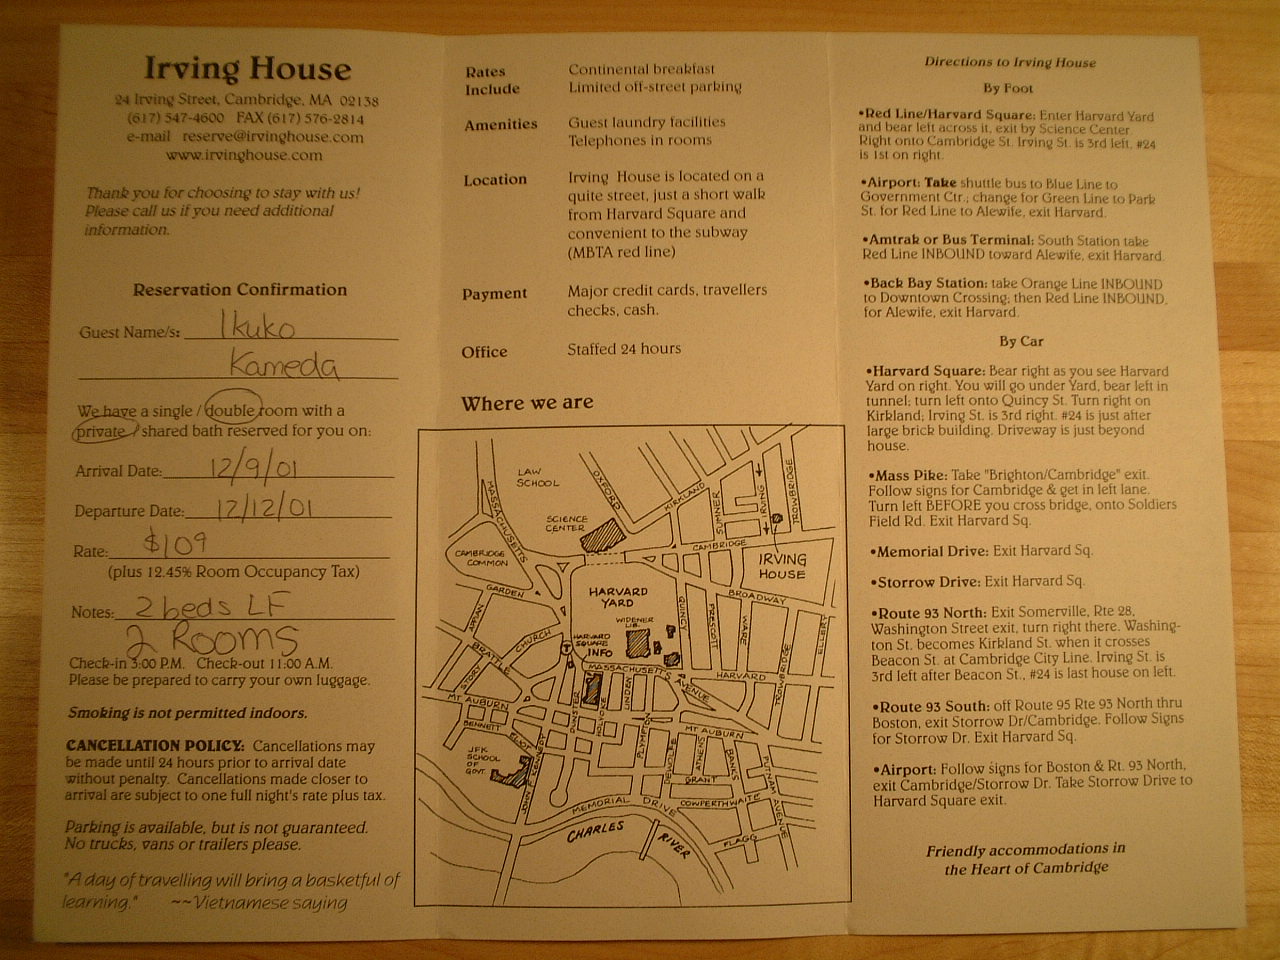 Irving House
24 Irving Street, Cambridge, MA 02138
(617) 547-4600 FAX (617) 576-2814
e-mail reserve@irvinghouse.com
www.irvinghouse.com
Thank you for choosing to stay with us!
Please call us if you need additional
information.
Reservation Confirmation
Guest Name/s: Ikuko
Kameda
We have a single / double room with a
private / shared bath reserved for you on:
Arrival Date: 12/9/01
Departure Date: 12/12/01
Rate: $109
(plus 12.45% Room Occupancy Tax)
Notes: 2 beds LF
2 ROOMS
Check-in 3:00 P.M. Check-out 11:00 A.M.
Please be prepared to carry your own luggage.
Smoking is not permitted indoors.
CANCELLATION POLICY: Cancellations may
be made until 24 hours prior to arrival date
without penalty. Cancellations made closer to
arrival are subject to one full night's rate plus tax.
Parking is available, but is not guaranteed.
No trucks, vans or trailers please.
"A day of travelling will bring a basketful of
learning." ~~Vietnamese saying
Rates Include Continental breakfast
Limited off-street parking
Amenities Guest laundry facilities
Telephones in rooms
Location Irving House is located on a
quite street, just a short walk
from Harvard Square and
convenient to the subway
(MBTA red line)
Payment Major credit cards, travellers
checks, cash.
Office Staffed 24 hours
Where we are
LAW
SCHOOL
OXFORD
KIRKLAND
SUMNER
IRVING
TROWBRIDGE
MASSACHUSETTS
SCIENCE
CENTER
CAMBRIDGE
COMMON
CAMBRIDGE
IRVING
HOUSE
GARDEN
HARVARD
YARD
BROADWAY
APPIAN
CHURCH
WIDENER
LIB.
QUINCY
PRESCOTT
WARE
ELLERY
HARVARD
SQUARE
INFO
T
BRATTLE
STORY
MASSACHUSETTS AVENUE
HARVARD
TROWBRIDGE
MT AUBURN
DUNSTER
HOLYOKE
LINDEN
PLYMPTON
BENNETT
ELIOT
MT AUBURN
JFK
SCHOOL
OF
GOVT.
JOHN F. KENNEDY
DEWOLFE
ATHENS
BANKS
GRANT
PUTNAM
AVENUE
COWPERTHWAITE
MEMORIAL DRIVE
FLAGG
CHARLES RIVER
Directions to Irving House
By Foot
•Red Line/Harvard Square: Enter Harvard Yard
and bear left across it, exit by Science Center.
Right onto Cambridge St. Irving St. is 3rd left, #24
is 1st on right.
•Airport: Take shuttle bus to Blue Line to
Government Ctr.; change for Green Line to Park
St. for Red Line to Alewife, exit Harvard.
•Amtrak or Bus Terminal: South Station take
Red Line INBOUND toward Alewife, exit Harvard.
•Back Bay Station: take Orange Line INBOUND
to Downtown Crossing; then Red Line INBOUND,
for Alewife, exit Harvard.
By Car
•Harvard Square: Bear right as you see Harvard
Yard on right. You will go under Yard, bear left in
tunnel; turn left onto Quincy St. Turn right on
Kirkland; Irving St. is 3rd right. #24 is just after
large brick building. Driveway is just beyond
house.
•Mass Pike: Take "Brighton/Cambridge" exit.
Follow signs for Cambridge & get in left lane.
Turn left BEFORE you cross bridge, onto Soldiers
Field Rd. Exit Harvard Sq.
•Memorial Drive: Exit Harvard Sq.
•Storrow Drive: Exit Harvard Sq.
•Route 93 North: Exit Somerville, Rte 28,
Washington Street exit, turn right there. Washing-
ton St. becomes Kirkland St. when it crosses
Beacon St. at Cambridge City Line. Irving St. is
3rd left after Beacon St., #24 is last house on left.
•Route 93 South: off Route 95 Rte 93 North thru
Boston, exit Storrow Dr/Cambridge. Follow Signs
for Storrow Dr. Exit Harvard Sq.
•Airport: Follow signs for Boston & Rt. 93 North,
exit Cambridge/Storrow Dr. Take Storrow Drive to
Harvard Square exit.
Friendly accommodations in
the Heart of Cambridge